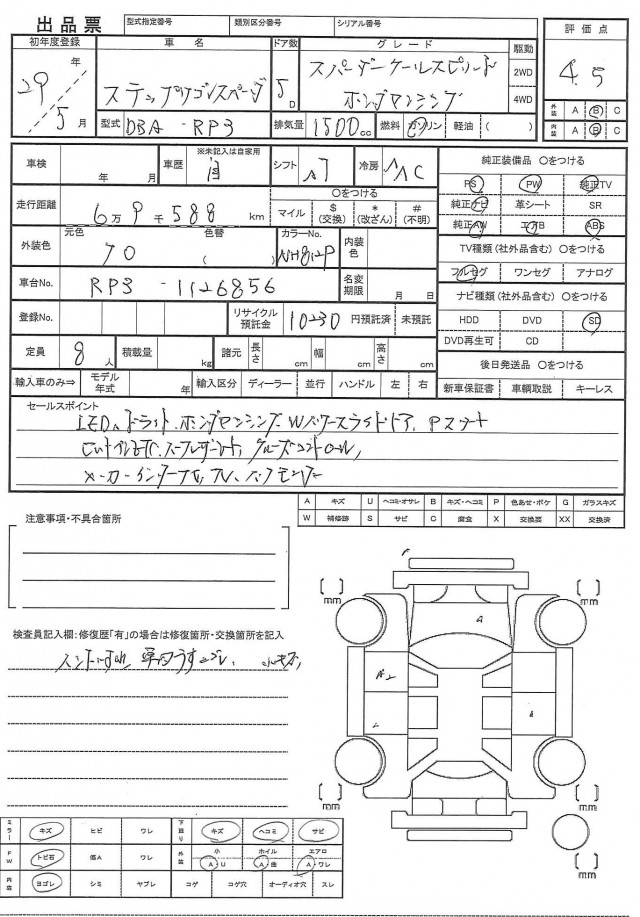 出品票 型式指定番号 類別区分番号 シリアル番号
初年度登録 車名 ドア数 グレード 駆動 評価点
29年 5月 ステップワゴンスパーダ 5D スパーダークールスピリット ホンダセンシング 2WD 4WD 4.5
型式 DBA-RP3 排気量 1500cc 燃料 ガソリン 軽油 ( )
外装 A B C
内装 A B C
車検 年 月 車歴 ※未記入は自家用 自 シフト AT 冷房 AAC
純正装備品 ○をつける
PS PW 純正TV
走行距離 6万9千588km ○をつける
マイル $(交換) *(改ざん) #(不明)
純正ナビ 革シート SR
純正AW エアB ABS
外装色 元色 70 色替 ( ) カラーNo. NH812P 内装色
TV種類(社外品含む) ○をつける
フルセグ ワンセグ アナログ
車台No. RP3-1126856 名変期限 月 日
ナビ種類(社外品含む) ○をつける
登録No. リサイクル預託金 10230 円預託済 未預託
HDD DVD SD
DVD再生可 CD
定員 8人 積載量 kg 諸元 長さ cm 幅 cm 高さ cm
後日発送品 ○をつける
輸入車のみ⇒ モデル年式 年 輸入区分 ディーラー 並行 ハンドル 左 右
新車保証書 車輌取説 キーレス
セールスポイント
LEDヘッドライト、ホンダセンシング Wパワースライドドア、Pスタート
ビルトインETC、クルーズコントロール、
メーカーインターナビ、TV、バックモニター
A キズ U ヘコミ・オサレ B キズ・ヘコミ P 色あせ・ボケ G ガラスキズ
W 補修跡 S サビ C 腐食 X 交換要 XX 交換済
注意事項・不具合箇所
mm mm
A
検査員記入欄:修復歴「有」の場合は修復箇所・交換箇所を記入
車内うすヨゴレ、小キズ、
mm mm mm
ミラー キズ ヒビ ワレ 下廻り キズ ヘコミ サビ
FW トビ石 価A ワレ 外装 小 A・U ホイル A・曲 エアロ A・ワレ
内装 ヨゴレ シミ ヤブレ コゲ コゲ穴 オーディオ穴 スレ